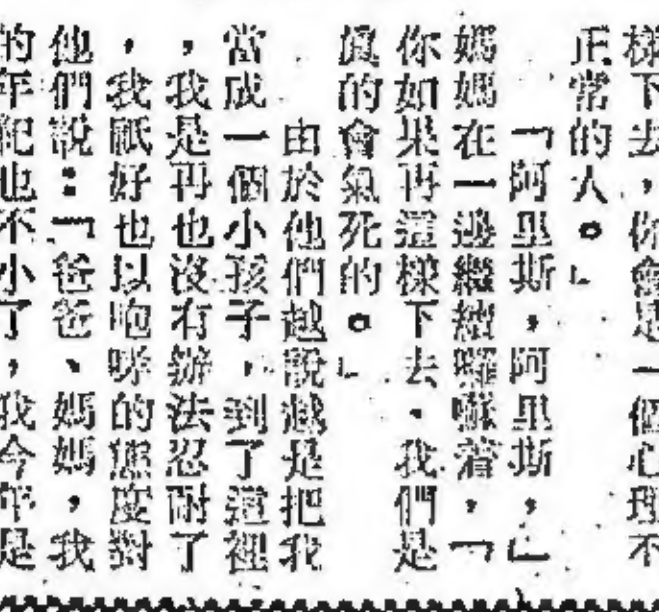 樣下去，你會是一個心理不
正常的人。」
「阿里斯，阿里斯，」
媽媽在一邊繼續囉嗦着，「
你如果再這樣下去，我們是
眞的會氣死的。」
由於他們越說越是把我
當成一個小孩子，到了這裡
，我是再也沒有辦法忍耐了
，我祇好也以咆哮的態度對
他們說：「爸爸、媽媽，我
的年紀也不小了，我今年是